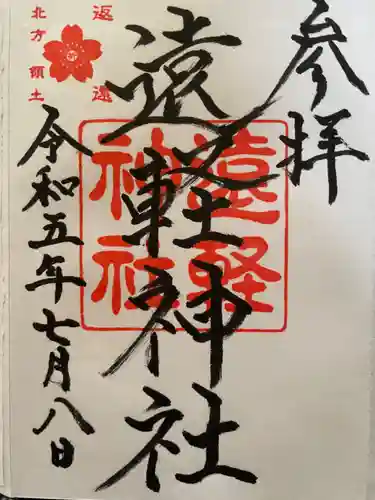 参拝
遠軽神社
遠軽
神社
返還
北方領土
令和五年七月八日